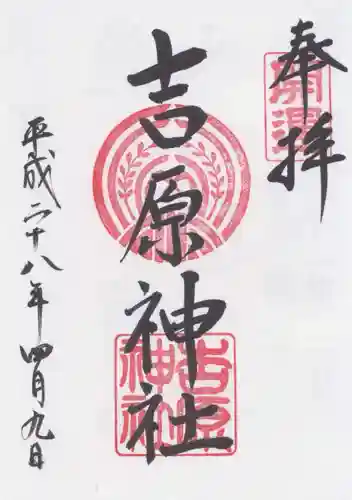 奉拝
開運
吉原神社
吉原神社
平成二十八年四月九日